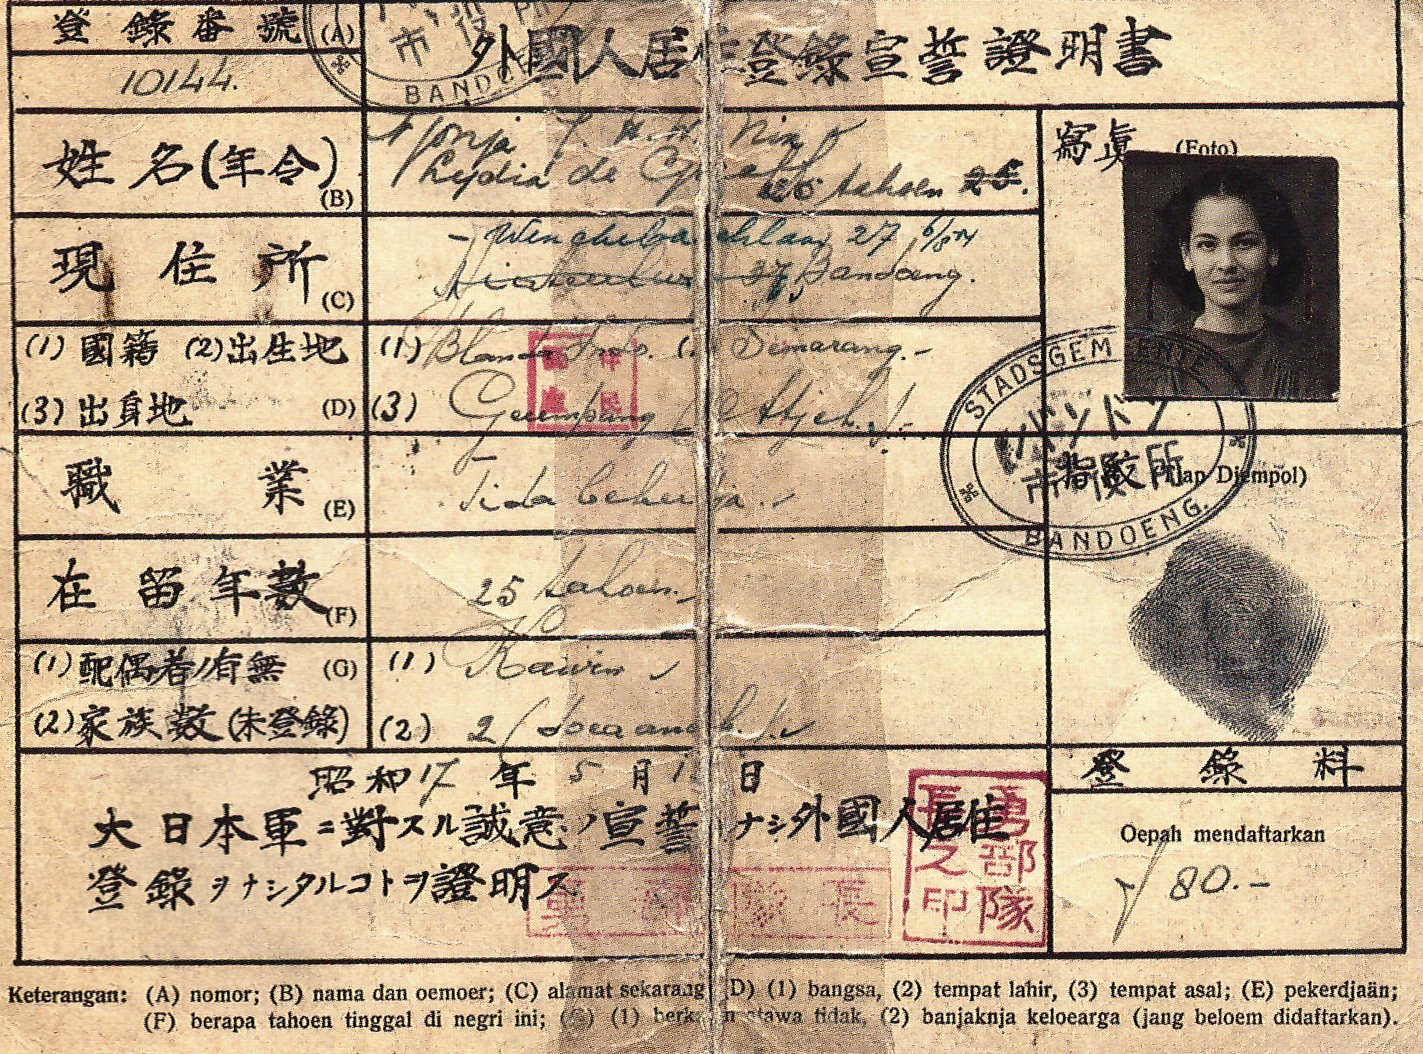 登錄番號 (A)
10144.
市役
BANDO
外國人居住登錄宣誓證明書
姓名(年令) (B)
Njonja
Lydia de
tahoen
寫眞 (Foto)
現住所 (C)
27 6/8
Bandoeng.
(1) 國籍 (2) 出生地
(3) 出身地 (D)
(1) Indo. Semarang.-
(3)
STADSGEMEENTE
バンドン
市役所
BANDOENG.
指紋 (Tjap Djempol)
職業 (E)
Tida bekerdja.-
在留年数 (F)
25 tahoen.-
(1) 配偶者ノ有無 (G)
(1) Kawin
(2) 家族数(未登錄)
(2) 2 (doea
昭和17年5月1 日
大日本軍ニ對スル誠意ノ宣誓ナシ外國人居住
登錄ヲナシタルコトヲ證明ス
部隊長
部隊
長之印
登錄料
Oepah mendaftarkan
80.-
Keterangan: (A) nomor; (B) nama dan oemoer; (C) alamat sekarang (D) (1) bangsa, (2) tempat lahir, (3) tempat asal; (E) pekerdjaän;
(F) berapa tahoen tinggal di negri ini; (G) (1) berkawin atawa tidak, (2) banjaknja keloearga (jang beloem didaftarkan).